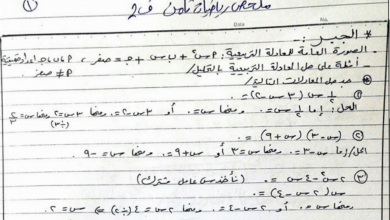 ①
ملخص رياضيات ثامن ف2
Date.
No.
* الجبر:-
* الصورة العامة للمعادلة التربيعية: P س² + ب س + جـ = صفر ، P، ب، جـ أعداد حقيقية
P ≠ صفر
* أمثلة على حل المعادلة التربيعية بالتحليل/
حل المعادلات التالية:
① ½ س (3س - 2) = 0
الحل: إما ½ س = 0 ومنها س = 0 أو 3س - 2 = 0 ومنها 3س = 2 ومنها س = 2/3
(÷3)
② (س - 3) (س + 9) = 0
الحل/ إما س - 3 = 0 ومنها س = 3 أو س + 9 = 0 ومنها س = -9
③ 2س² - 4س = 0 (نأخذ س عامل مشترك)
س (2س - 4) = 0
ومنها س = 0 أو 2س - 4 = 0 ومنها 2س = 4 (÷2) => س = 2